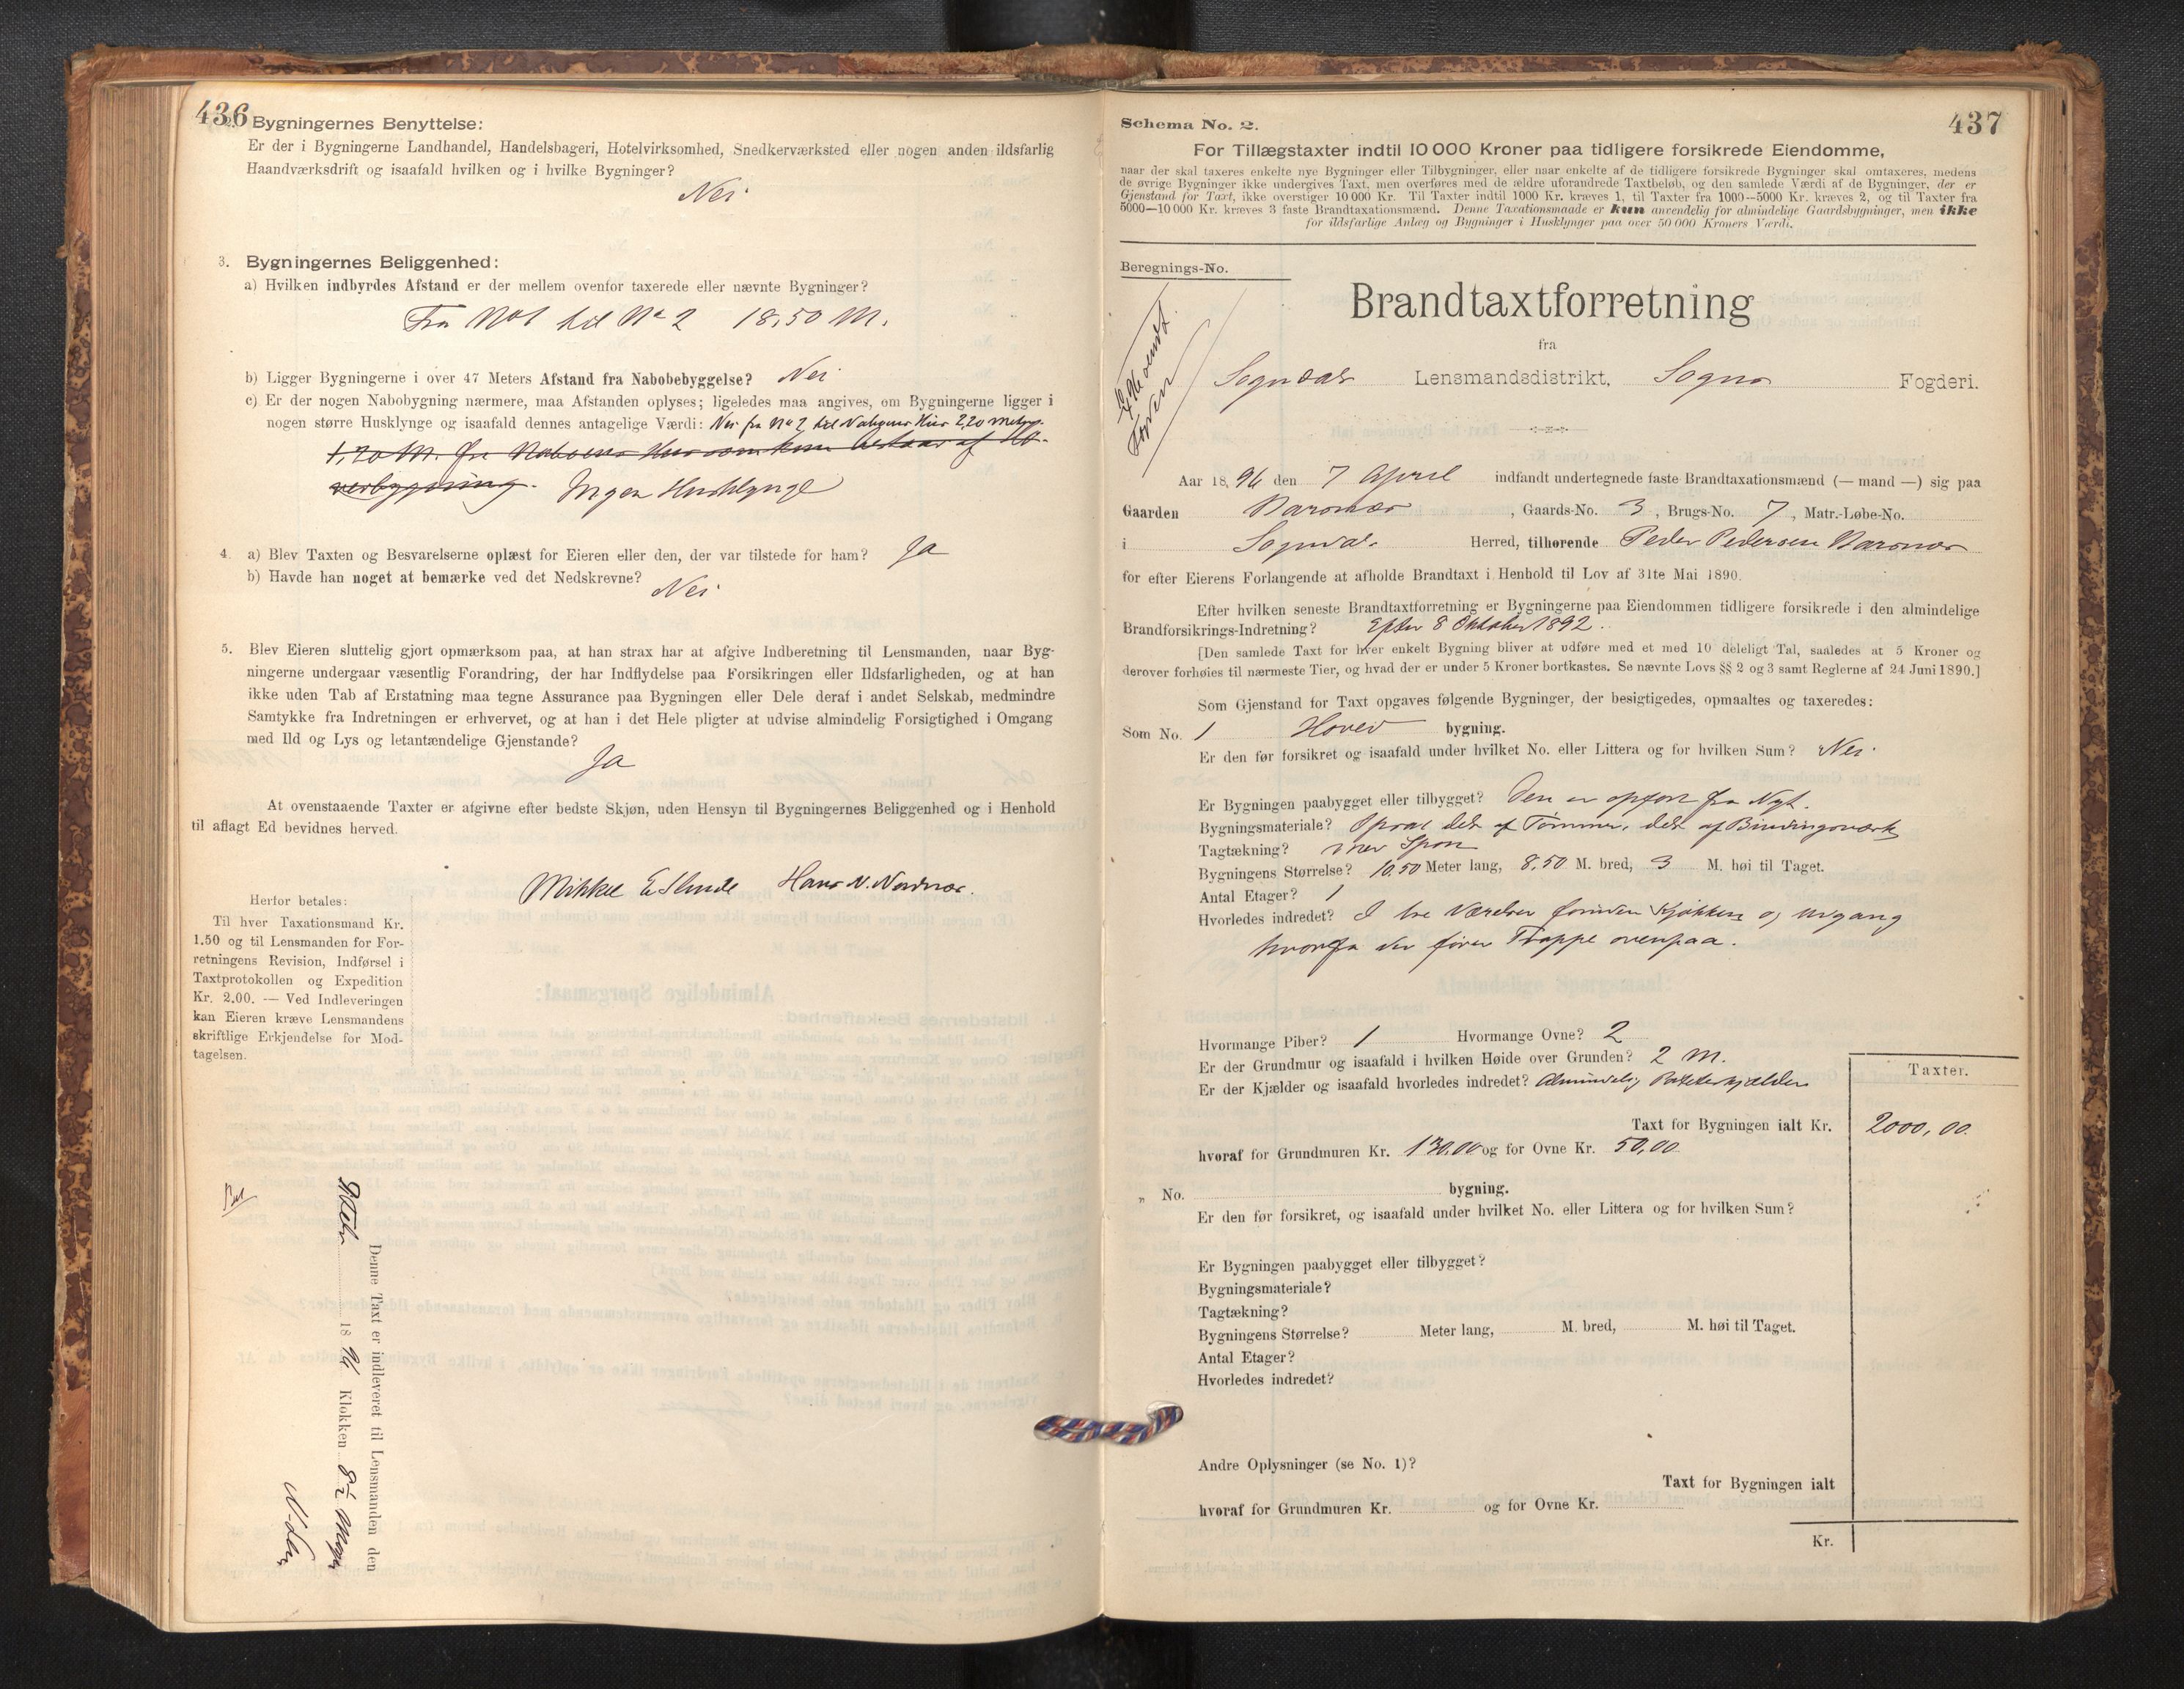 436
2. Bygningernes Benyttelse:
Er der i Bygningerne Landhandel, Handelsbageri, Hotelvirksomhed, Snedkerværksted eller nogen anden ildsfarlig
Haandværksdrift og isaafald hvilken og i hvilke Bygninger?
Nei
3. Bygningernes Beliggenhed:
a) Hvilken indbyrdes Afstand er der mellem ovenfor taxerede eller nævnte Bygninger?
Fra No 1 til No 2 18,50 M.
b) Ligger Bygningerne i over 47 Meters Afstand fra Nabobebyggelse? Nei
c) Er der nogen Nabobygning nærmere, maa Afstanden oplyses; ligeledes maa angives, om Bygningerne ligger i
nogen større Husklynge og isaafald dennes antagelige Værdi: Nei fra No 2 til Naboens Hus 2,20 Meter
1,20 M. fra Naboens Hus som kun bestaar af
Ingen Husklynge
4. a) Blev Taxten og Besvarelserne oplæst for Eieren eller den, der var tilstede for ham? Ja
b) Havde han noget at bemærke ved det Nedskrevne?
Nei
5. Blev Eieren sluttelig gjort opmærksom paa, at han strax har at afgive Indberetning til Lensmanden, naar Byg-
ningerne undergaar væsentlig Forandring, der har Indflydelse paa Forsikringen eller Ildsfarligheden, og at han
ikke uden Tab af Erstatning maa tegne Assurance paa Bygningen eller Dele deraf i andet Selskab, medmindre
Samtykke fra Indretningen er erhvervet, og at han i det Hele pligter at udvise almindelig Forsigtighed i Omgang
med Ild og Lys og letantændelige Gjenstande?
Ja
At ovenstaaende Taxter er afgivne efter bedste Skjøn, uden Hensyn til Bygningernes Beliggenhed og i Henhold
til aflagt Ed bevidnes herved.
Mikkel E Slinde Hans N. Nordnæs.
Herfor betales:
Til hver Taxationsmand Kr.
1.50 og til Lensmanden for For-
retningens Revision, Indførsel i
Taxtprotokollen og Expedition
Kr. 2.00. — Ved Indleveringen
kan Eieren kræve Lensmandens
skriftlige Erkjendelse for Mod-
tagelsen.
Denne Taxt er indleveret til Lensmanden den
1896 Klokken 8
437
Schema No. 2.
For Tillægstaxter indtil 10 000 Kroner paa tidligere forsikrede Eiendomme,
naar der skal taxeres enkelte nye Bygninger eller Tilbygninger, eller naar enkelte af de tidligere forsikrede Bygninger skal omtaxeres, medens
de øvrige Bygninger ikke undergives Taxt, men overføres med de ældre uforandrede Taxtbeløb, og den samlede Værdi af de Bygninger, der er
Gjenstand for Taxt, ikke overstiger 10 000 Kr. Til Taxter indtil 1000 Kr. kræves 1, til Taxter fra 1000—5000 Kr. kræves 2, og til Taxter fra
5000—10 000 Kr. kræves 3 faste Brandtaxationsmænd. Denne Taxationsmaade er kun anvendelig for almindelige Gaardsbygninger, men ikke
for ildsfarlige Anlæg og Bygninger i Husklynger paa over 50 000 Kroners Værdi.
Beregnings-No.
Brandtaxtforretning
fra
Sogndals Lensmandsdistrikt, Sogns Fogderi.
Aar 1896 den 7 April indfandt undertegnede faste Brandtaxationsmænd (— mand —) sig paa
Gaarden Navsnæs, Gaards-No. 3, Brugs-No. 7, Matr.-Løbe-No.
i Sogndal Herred, tilhørende Peder Pedersen Navsnæs
for efter Eierens Forlangende at afholde Brandtaxt i Henhold til Lov af 31te Mai 1890.
Efter hvilken seneste Brandtaxtforretning er Bygningerne paa Eiendommen tidligere forsikrede i den almindelige
Brandforsikrings-Indretning? Efter 8 Oktober 1892.
[Den samlede Taxt for hver enkelt Bygning bliver at udføre med et med 10 deleligt Tal, saaledes at 5 Kroner og
derover forhøies til nærmeste Tier, og hvad der er under 5 Kroner bortkastes. Se nævnte Lovs §§ 2 og 3 samt Reglerne af 24 Juni 1890.]
Som Gjenstand for Taxt opgaves følgende Bygninger, der besigtigedes, opmaaltes og taxeredes:
Som No. 1 Hoved bygning.
Er den før forsikret og isaafald under hvilket No. eller Littera og for hvilken Sum? Nei
Er Bygningen paabygget eller tilbygget? Den er opført fra Nyt.
Bygningsmateriale? Opsat dels af Tømmer, dels af Bindingsværk
Tagtækning? med Spon
Bygningens Størrelse? 10,50 Meter lang, 8,50 M. bred, 3 M. høi til Taget.
Antal Etager? 1
Hvorledes indredet? I tre Værelser foruden Kjøkken og Udgang
hvorfra der fører Trappe ovenpaa.
Hvormange Piber? 1 Hvormange Ovne? 2
Er der Grundmur og isaafald i hvilken Høide over Grunden? 2 M.
Er der Kjælder og isaafald hvorledes indredet? Almindelig Potetkjælder
Taxter.
Taxt for Bygningen ialt Kr. 2000,00
hvoraf for Grundmuren Kr. 130.00 og for Ovne Kr. 50,00
" No. bygning.
Er den før forsikret, og isaafald under hvilket No. eller Littera og for hvilken Sum?
Er Bygningen paabygget eller tilbygget?
Bygningsmateriale?
Tagtækning?
Bygningens Størrelse? Meter lang, M. bred, M. høi til Taget.
Antal Etager?
Hvorledes indredet?
Andre Oplysninger (se No. 1)?
Taxt for Bygningen ialt
hvoraf for Grundmuren Kr. og for Ovne Kr.
Kr.